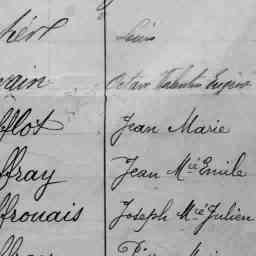 Louis
Octave Valentin Eugène
fflot Jean Marie
ffray Jean Mie Emile
ffrouais Joseph Mie Julien